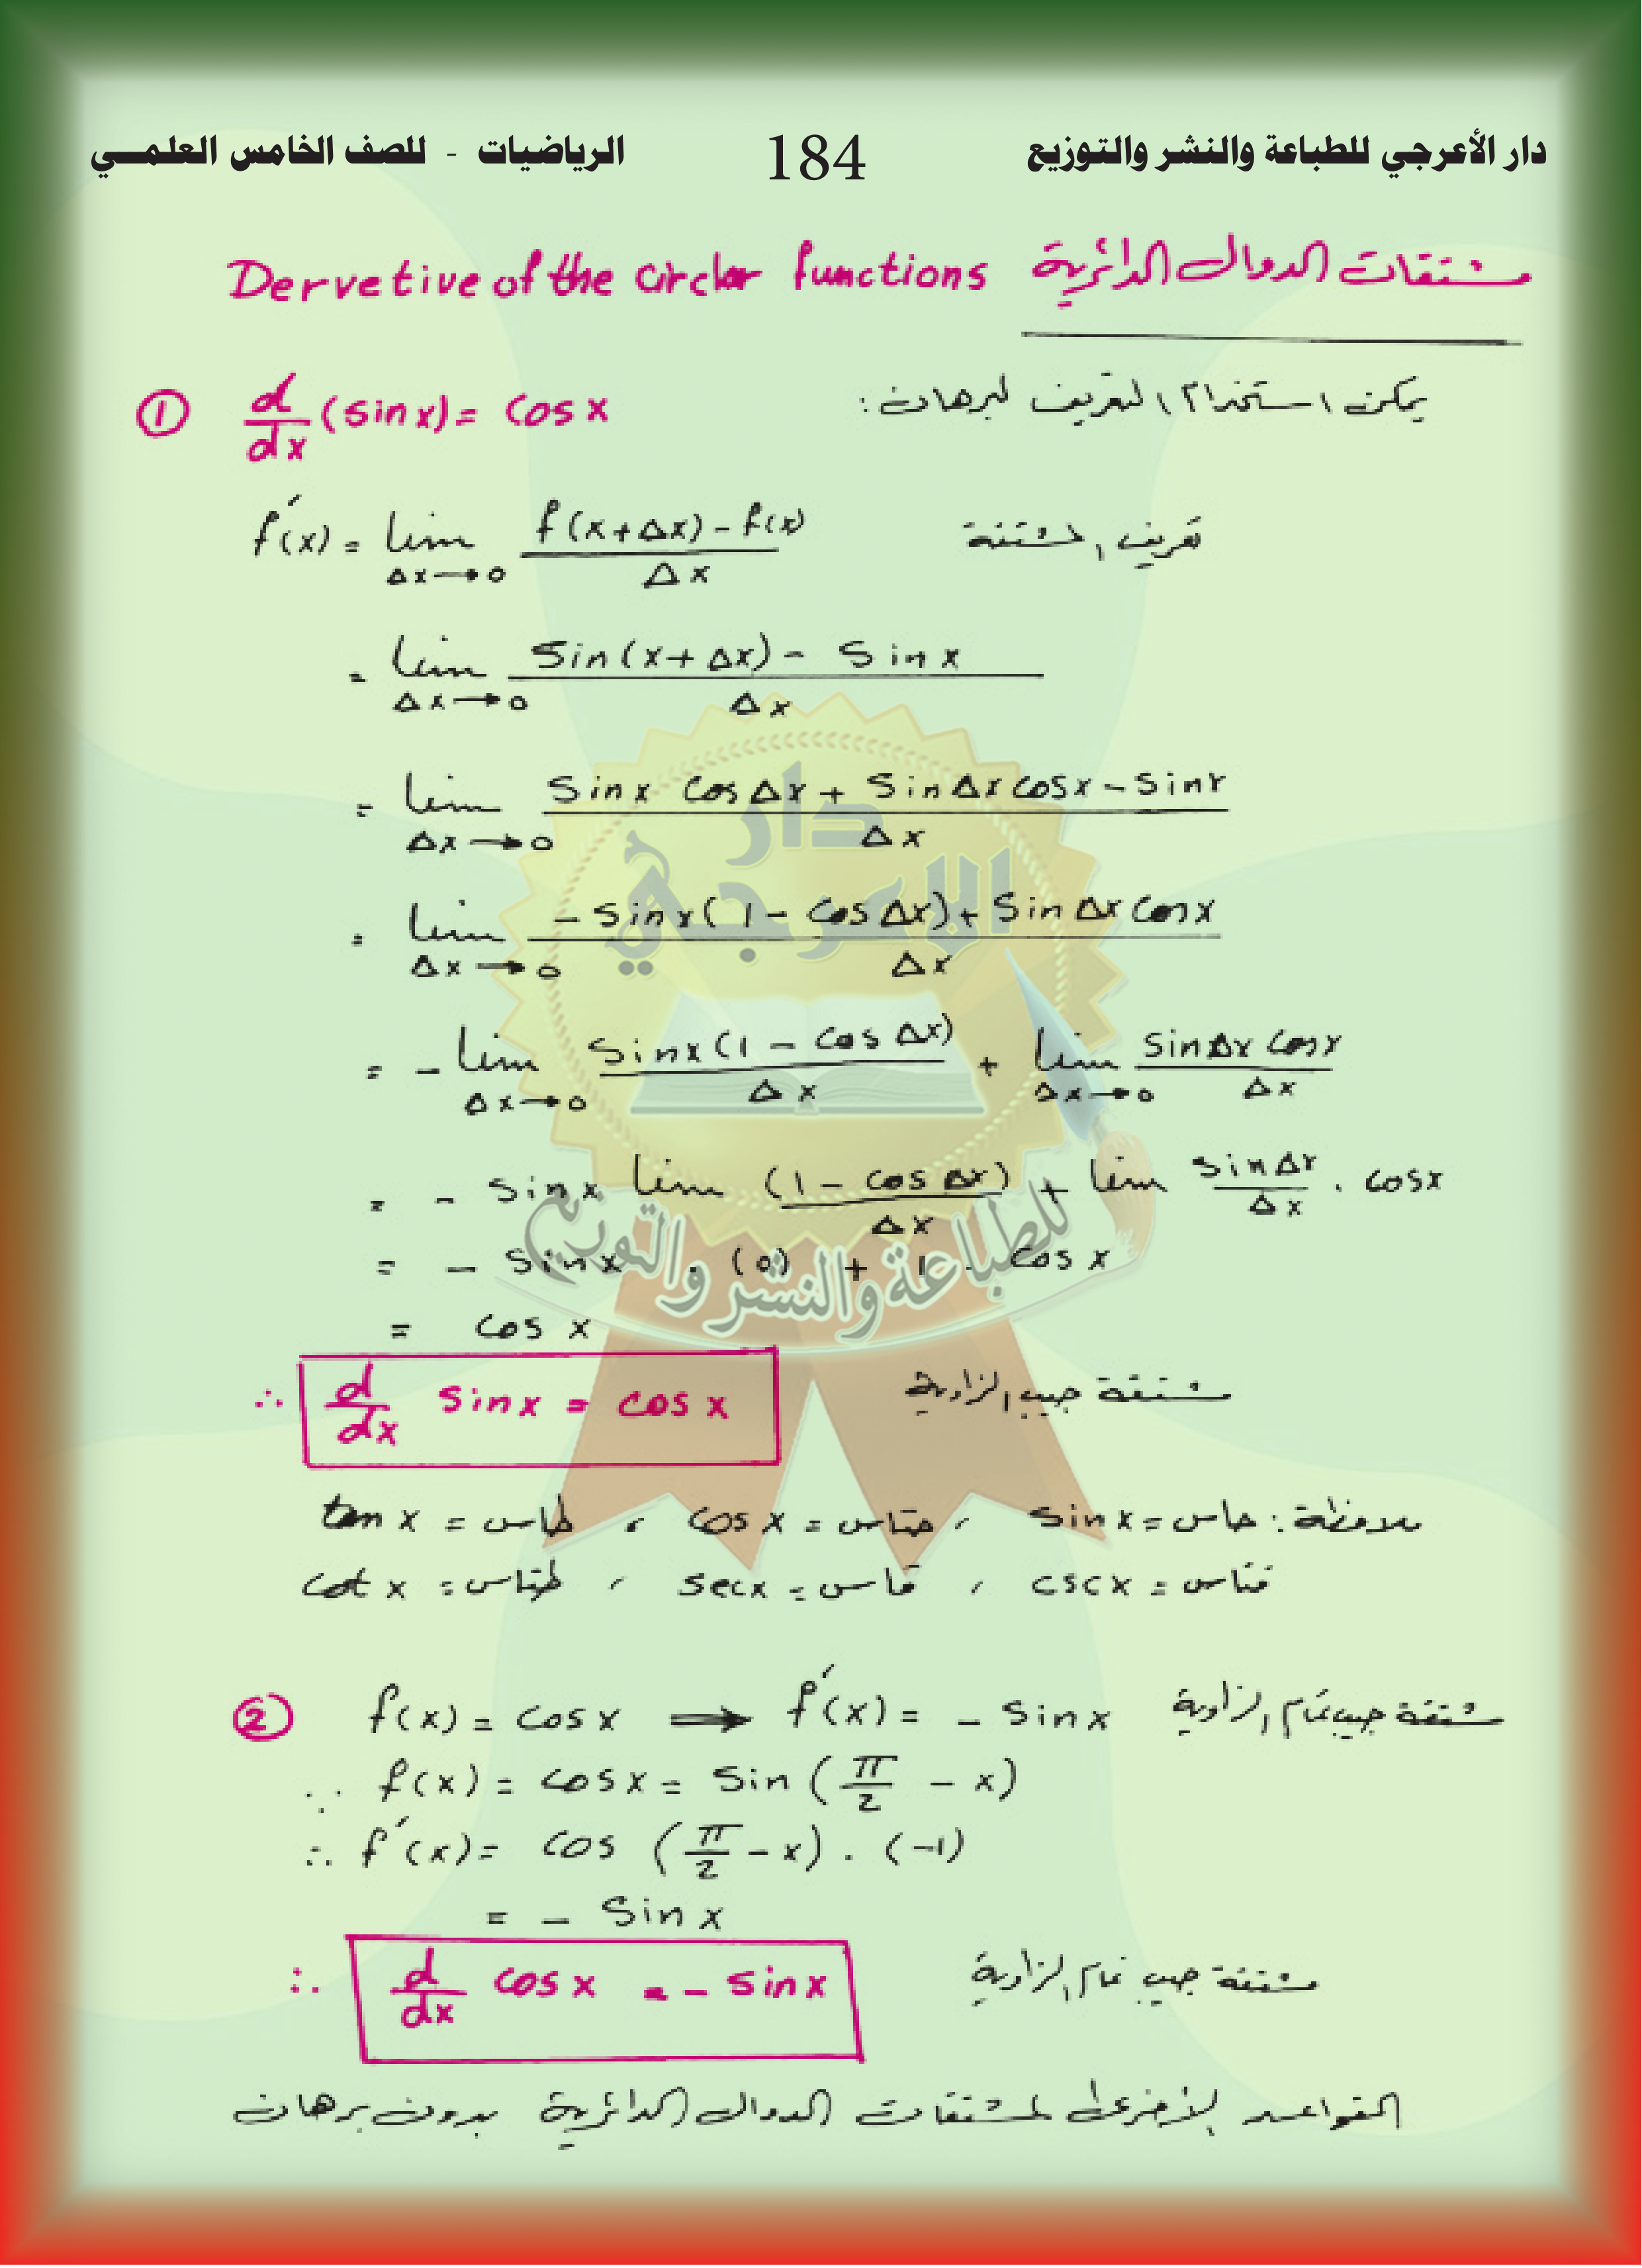 دار الأعرجي للطباعة والنشر والتوزيع 184 الرياضيات - للصف الخامس العلمـــي
مشتقات الدوال الدائرية Dervetive of the circlar functions
يمكن استخدام التعريف لبرهان:
① d/dx (sin x) = cos x
f′(x) = lim Δx→0 (f(x+Δx) - f(x)) / Δx تعريف المشتقة
= lim Δx→0 (sin(x+Δx) - sin x) / Δx
= lim Δx→0 (sin x cos Δx + sin Δx cos x - sin x) / Δx
= lim Δx→0 (- sin x (1 - cos Δx) + sin Δx cos x) / Δx
= - lim Δx→0 (sin x (1 - cos Δx)) / Δx + lim Δx→0 (sin Δx cos x) / Δx
= - sin x lim (1 - cos Δx) / Δx + lim (sin Δx / Δx) . cos x
= - sin x . (0) + 1 . cos x
= cos x
∴ d/dx sin x = cos x مشتقة جيب الزاوية
ملاحظة: حاس = sin x ، حتاس = cos x ، طاس = tan x
قتاس = csc x ، قاس = sec x ، طتاس = cot x
② f(x) = cos x ⟹ f′(x) = - sin x مشتقة جيب تمام الزاوية
∵ f(x) = cos x = sin (π/2 - x)
∴ f′(x) = cos (π/2 - x) . (-1)
= - sin x
∴ d/dx cos x = - sin x مشتقة جيب تمام الزاوية
القواعد الأخرى لمشتقات الدوال الدائرية بدون برهان
دار
الاعرجي
للطباعة والنشر والتوزيع